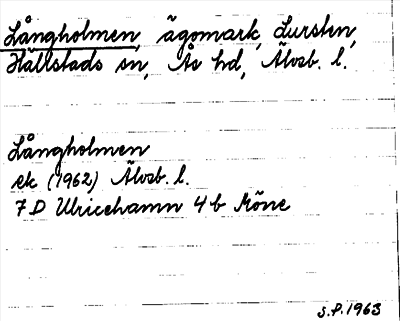 Långholmen, ägomark, Lursten,
Hällstads sn, Ås hd, Älvsb. l.
Långholmen
ek (1962) Älvsb. l.
7 D Ulricehamn 4 b Möne
S.P. 1963